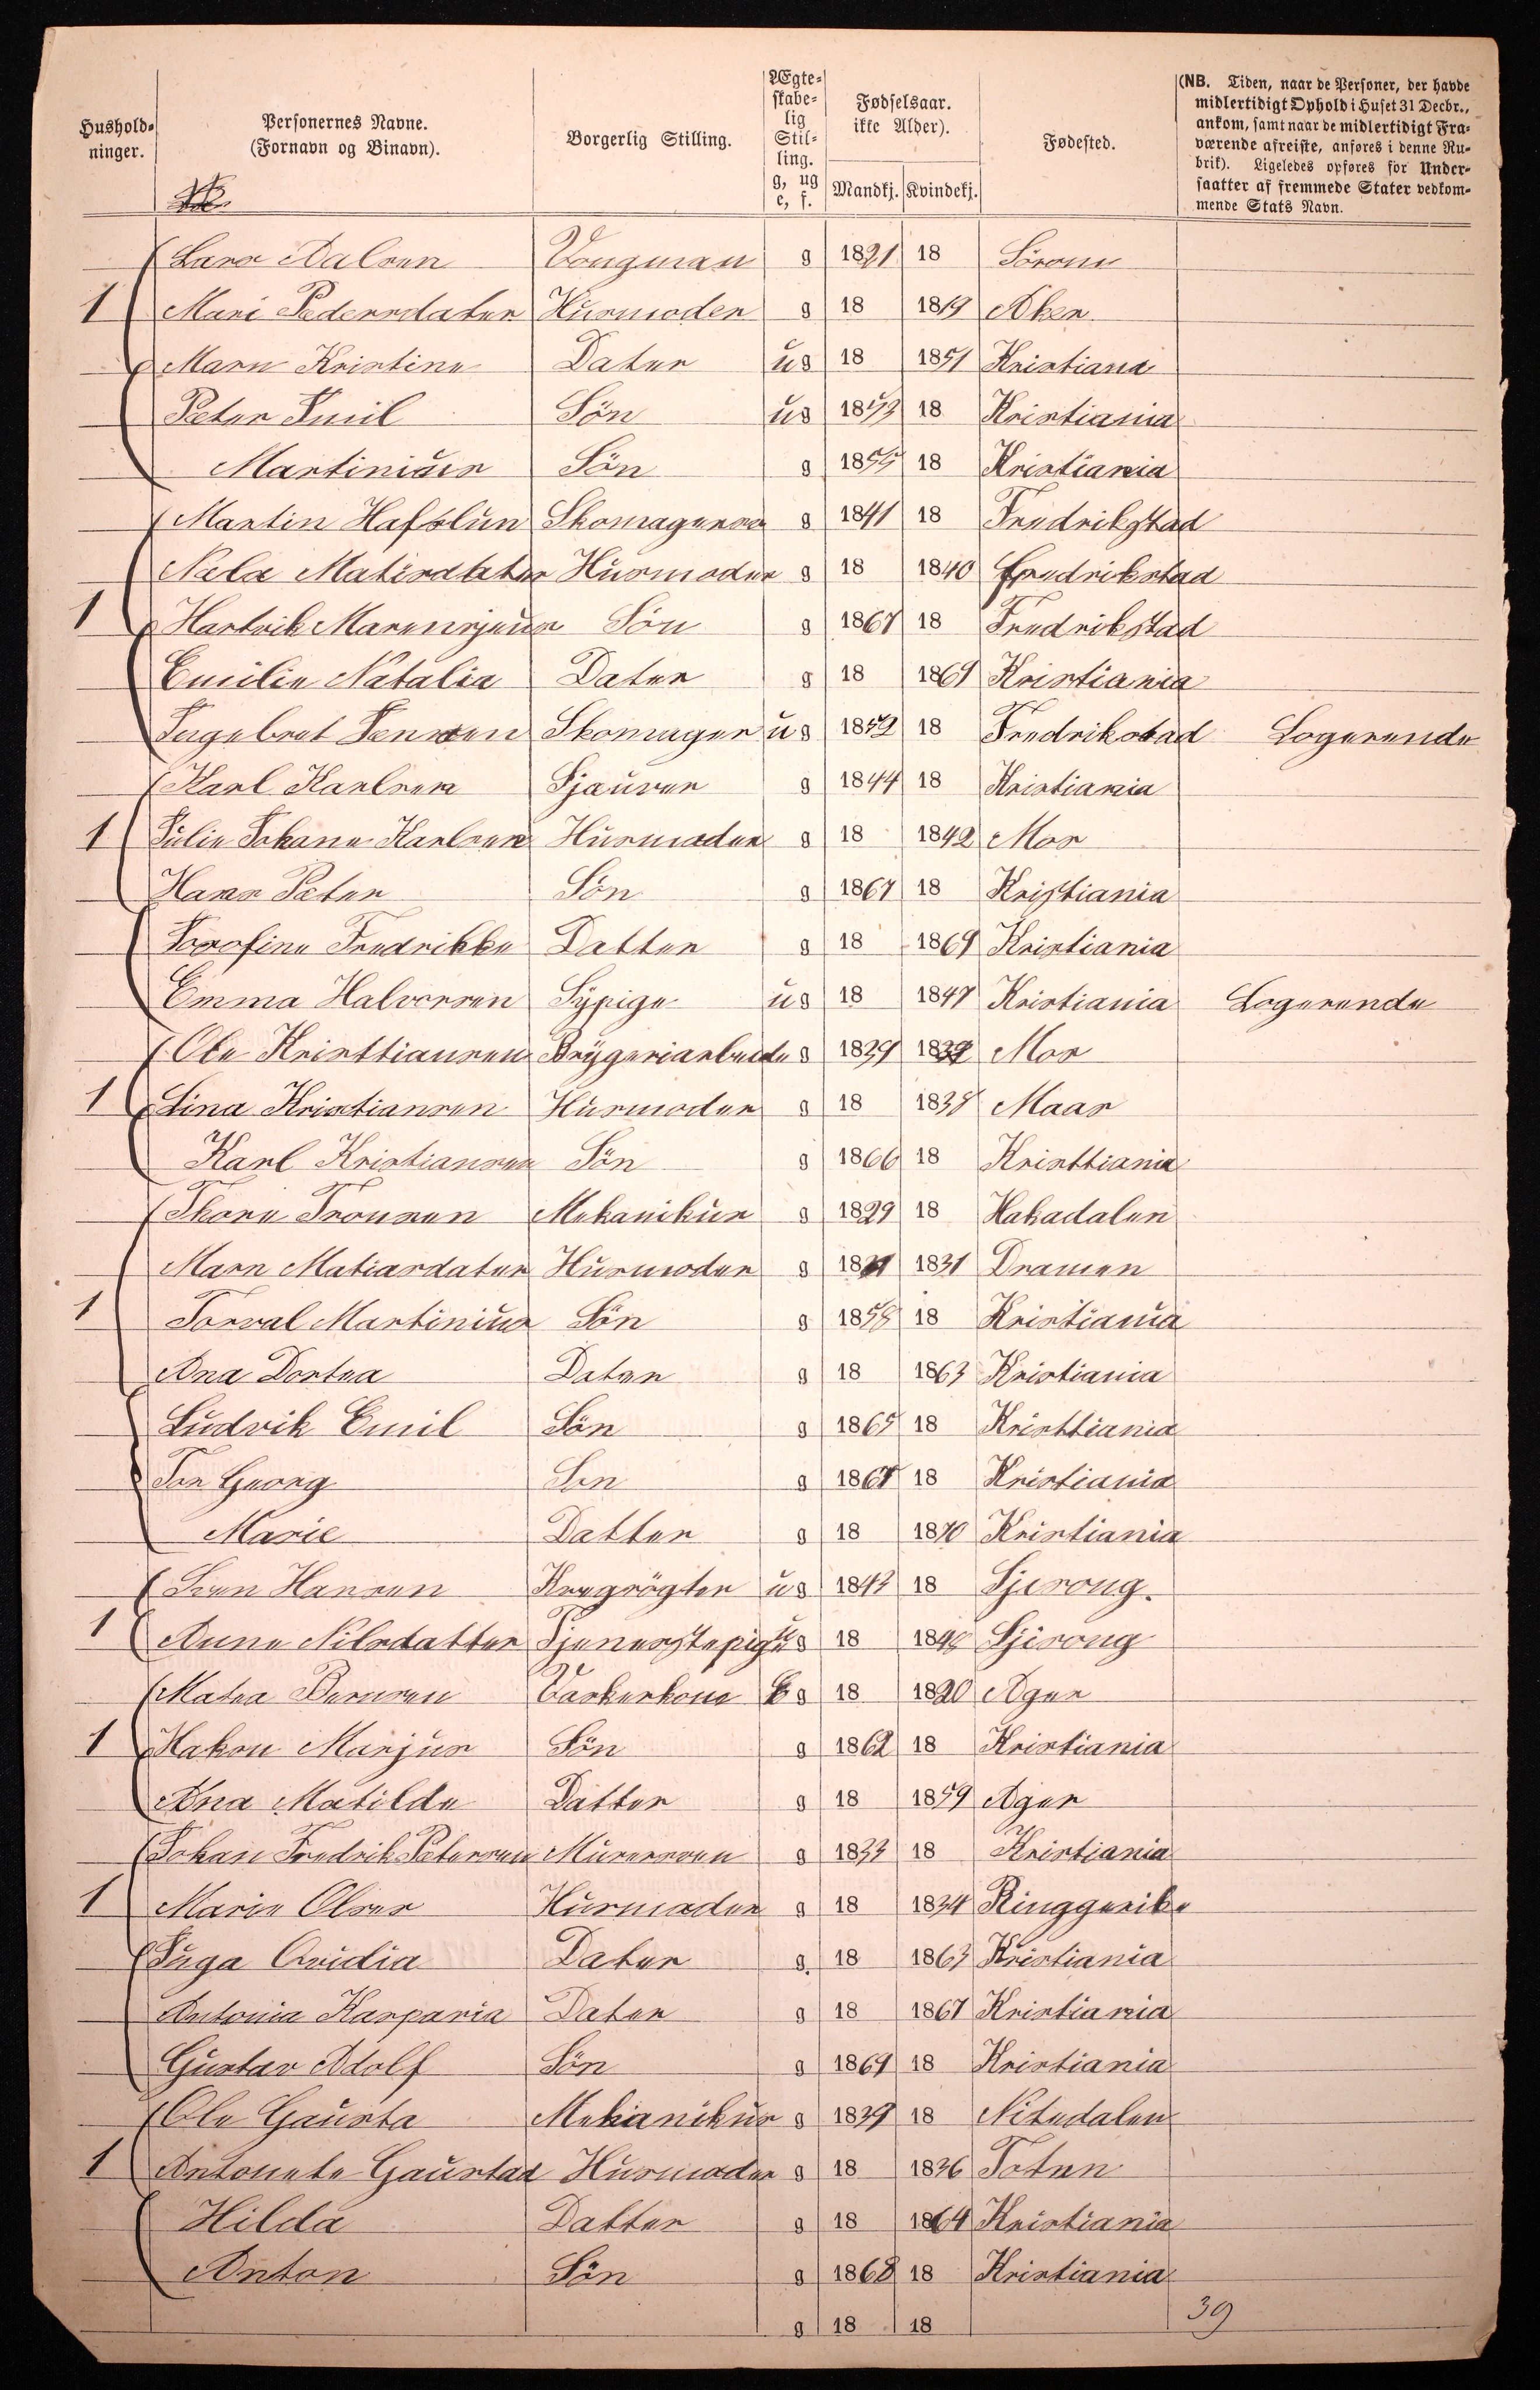 Hushold-
ninger.
Personernes Navne.
(Fornavn og Binavn).
Borgerlig Stilling.
Ægte-
skabe-
lig
Stil-
ling.
g, ug
e, f.
Fødselsaar.
ikke Alder).
Mandkj. Kvindekj.
Fødested.
(NB. Tiden, naar de Personer, der havde
midlertidigt Ophold i Huset 31 Decbr.,
ankom, samt naar de midlertidigt Fra-
værende afreiste, anføres i denne Ru-
brik). Ligeledes opføres for Under-
saatter af fremmede Stater vedkom-
mende Stats Navn.
Lars Dalsen Vongman g 1821 18 Sörom
1 Mari Pedersdater Husmoder g 18 1819 Aker
Marn Kristine Dater ug 18 1851 Kristiana
Peter Emil Sön ug 1853 18 Kristiania
Martinius Sön g 1855 18 Kristiania
Martin Hafslun Skomagersv g 1841 18 Fredrikstad
Nela Matisdater Husmoder g 18 1840 fredrikstad
1 Hartvik Marensjus Sön g 1867 18 Fredrikstad
Emilie Natalia Dater g 18 1869 Kristiania
Ingebret Jensen Skomager ug 1852 18 Fredrikstad Logerende
Karl Karlsen Sjauver g 1844 18 Kristiania
1 Julie Johane Karlsen Husmoder g 18 1842 Mos
Hans Peter Sön g 1867 18 Kristiania
Josofine Fredrikke Datter g 18 1869 Kristiania
Emma Halvorsen Sypige ug 18 1847 Kristiania Logerende
Ole Kristtiansen Brygeriarbeide g 1839 18 Mos
1 Lina Kristiansen Husmoder g 18 1838 Maas
Karl Kristiansen Sön g 1866 18 Kristtiania
Thore Tronsen Mekanikus g 1829 18 Hakadalen
Marn Matiasdater Husmoder g 18 1831 Dramen
1 Torval Martinius Sön g 1858 18 Kristiania
Ana Dortea Dater g 18 1863 Kristiania
Ludvik Emil Sön g 1865 18 Kristtiania
Jon Georg Son g 1867 18 Kristiania
Marie Datter g 18 1870 Kristiania
Sven Hansen Kregrögter ug 1843 18 Sjerong.
1 Anne Nilsdatter Tjenerstepige ug 18 1848 Sjirong
Matea Bernsen Vaskerkone E g 18 1820 Ager
1 Hakon Marjus Sön g 1862 18 Kristiania
Ana Matilde Datter g 18 1859 Ager
Johan Fredrik Petersen Murersven g 1833 18 Kristiania
1 Marie Olsen Husmoder g 18 1834 Ringgerike
Inga Ovidia Dater g. 18 1863 Kristiania
Antonia Kasparia Dater g 18 1867 Kristiania
Gustav Adolf Sön g 1869 18 Kristiania
Ole Gausta Mekanikus g 1839 18 Nitedalen
1 Antonete Gaustad Husmoder g 18 1836 Toten
Hilda Datter g 18 1864 Kristiania
Anton Sön g 1868 18 Kristiania
g 18 18 39